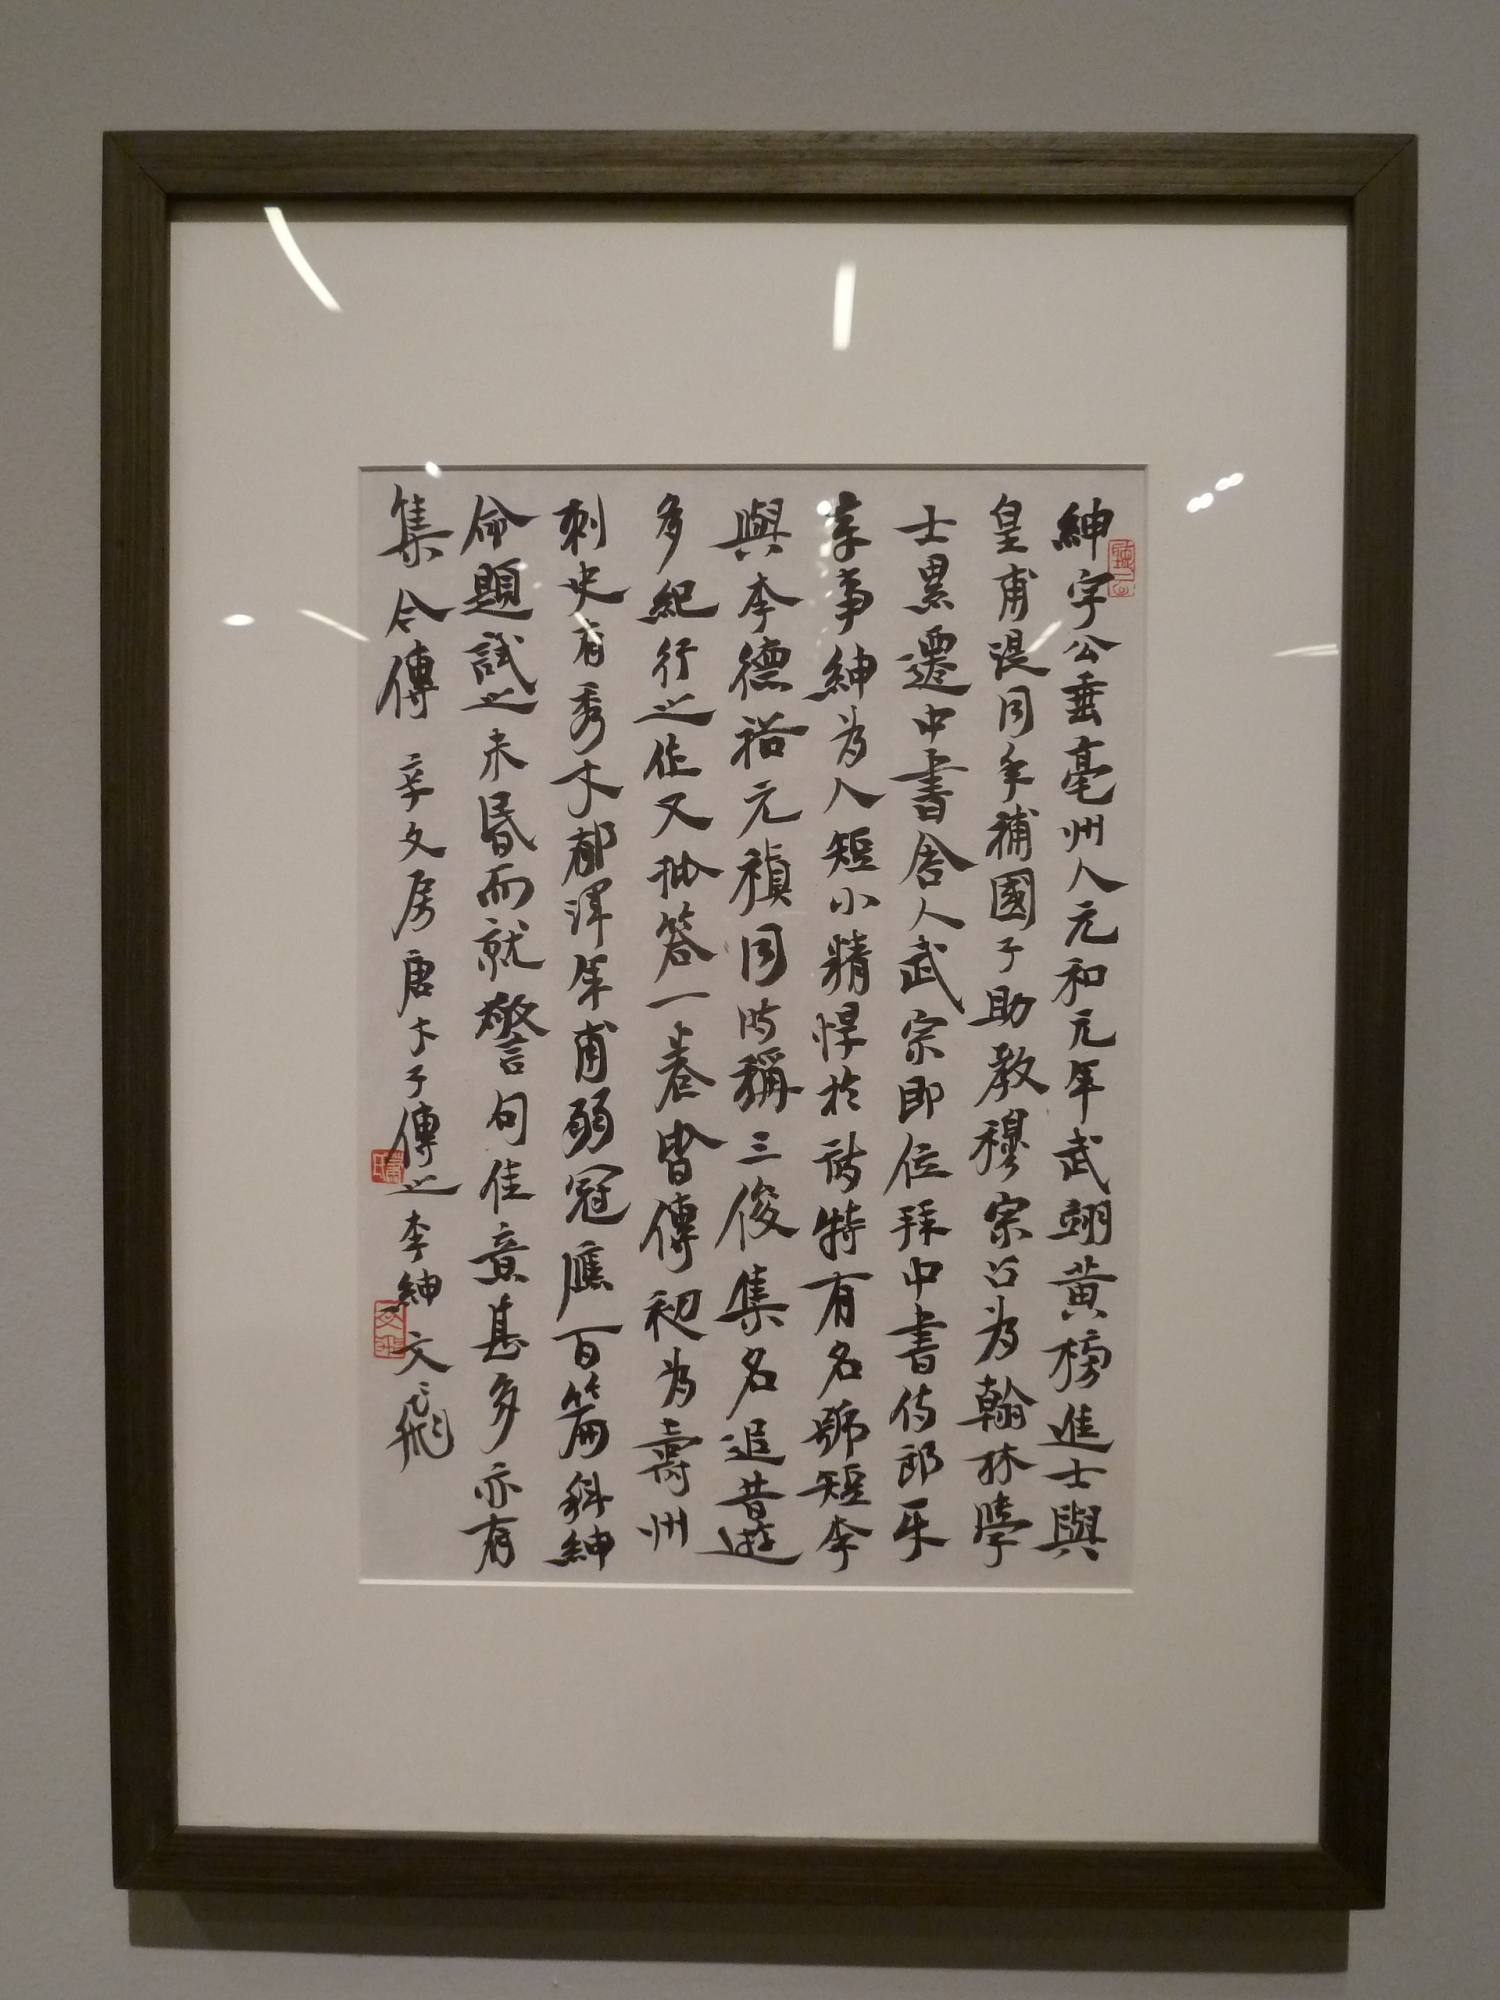 紳字公垂亳州人元和元年武翊黃榜進士與
皇甫湜同年補國子助教穆宗召為翰林學
士累遷中書舍人武宗即位拜中書侍郎平
章事紳為人短小精悍於詩特有名號短李
與李德裕元稹同時稱三俊集名追昔遊
多紀行之作又批答一卷皆傳初為壽州
刺史有秀才郁渾年甫弱冠應百篇科紳
命題試之未昏而就警句佳意甚多亦有
集今傳 辛文房唐才子傳之李紳 文飛